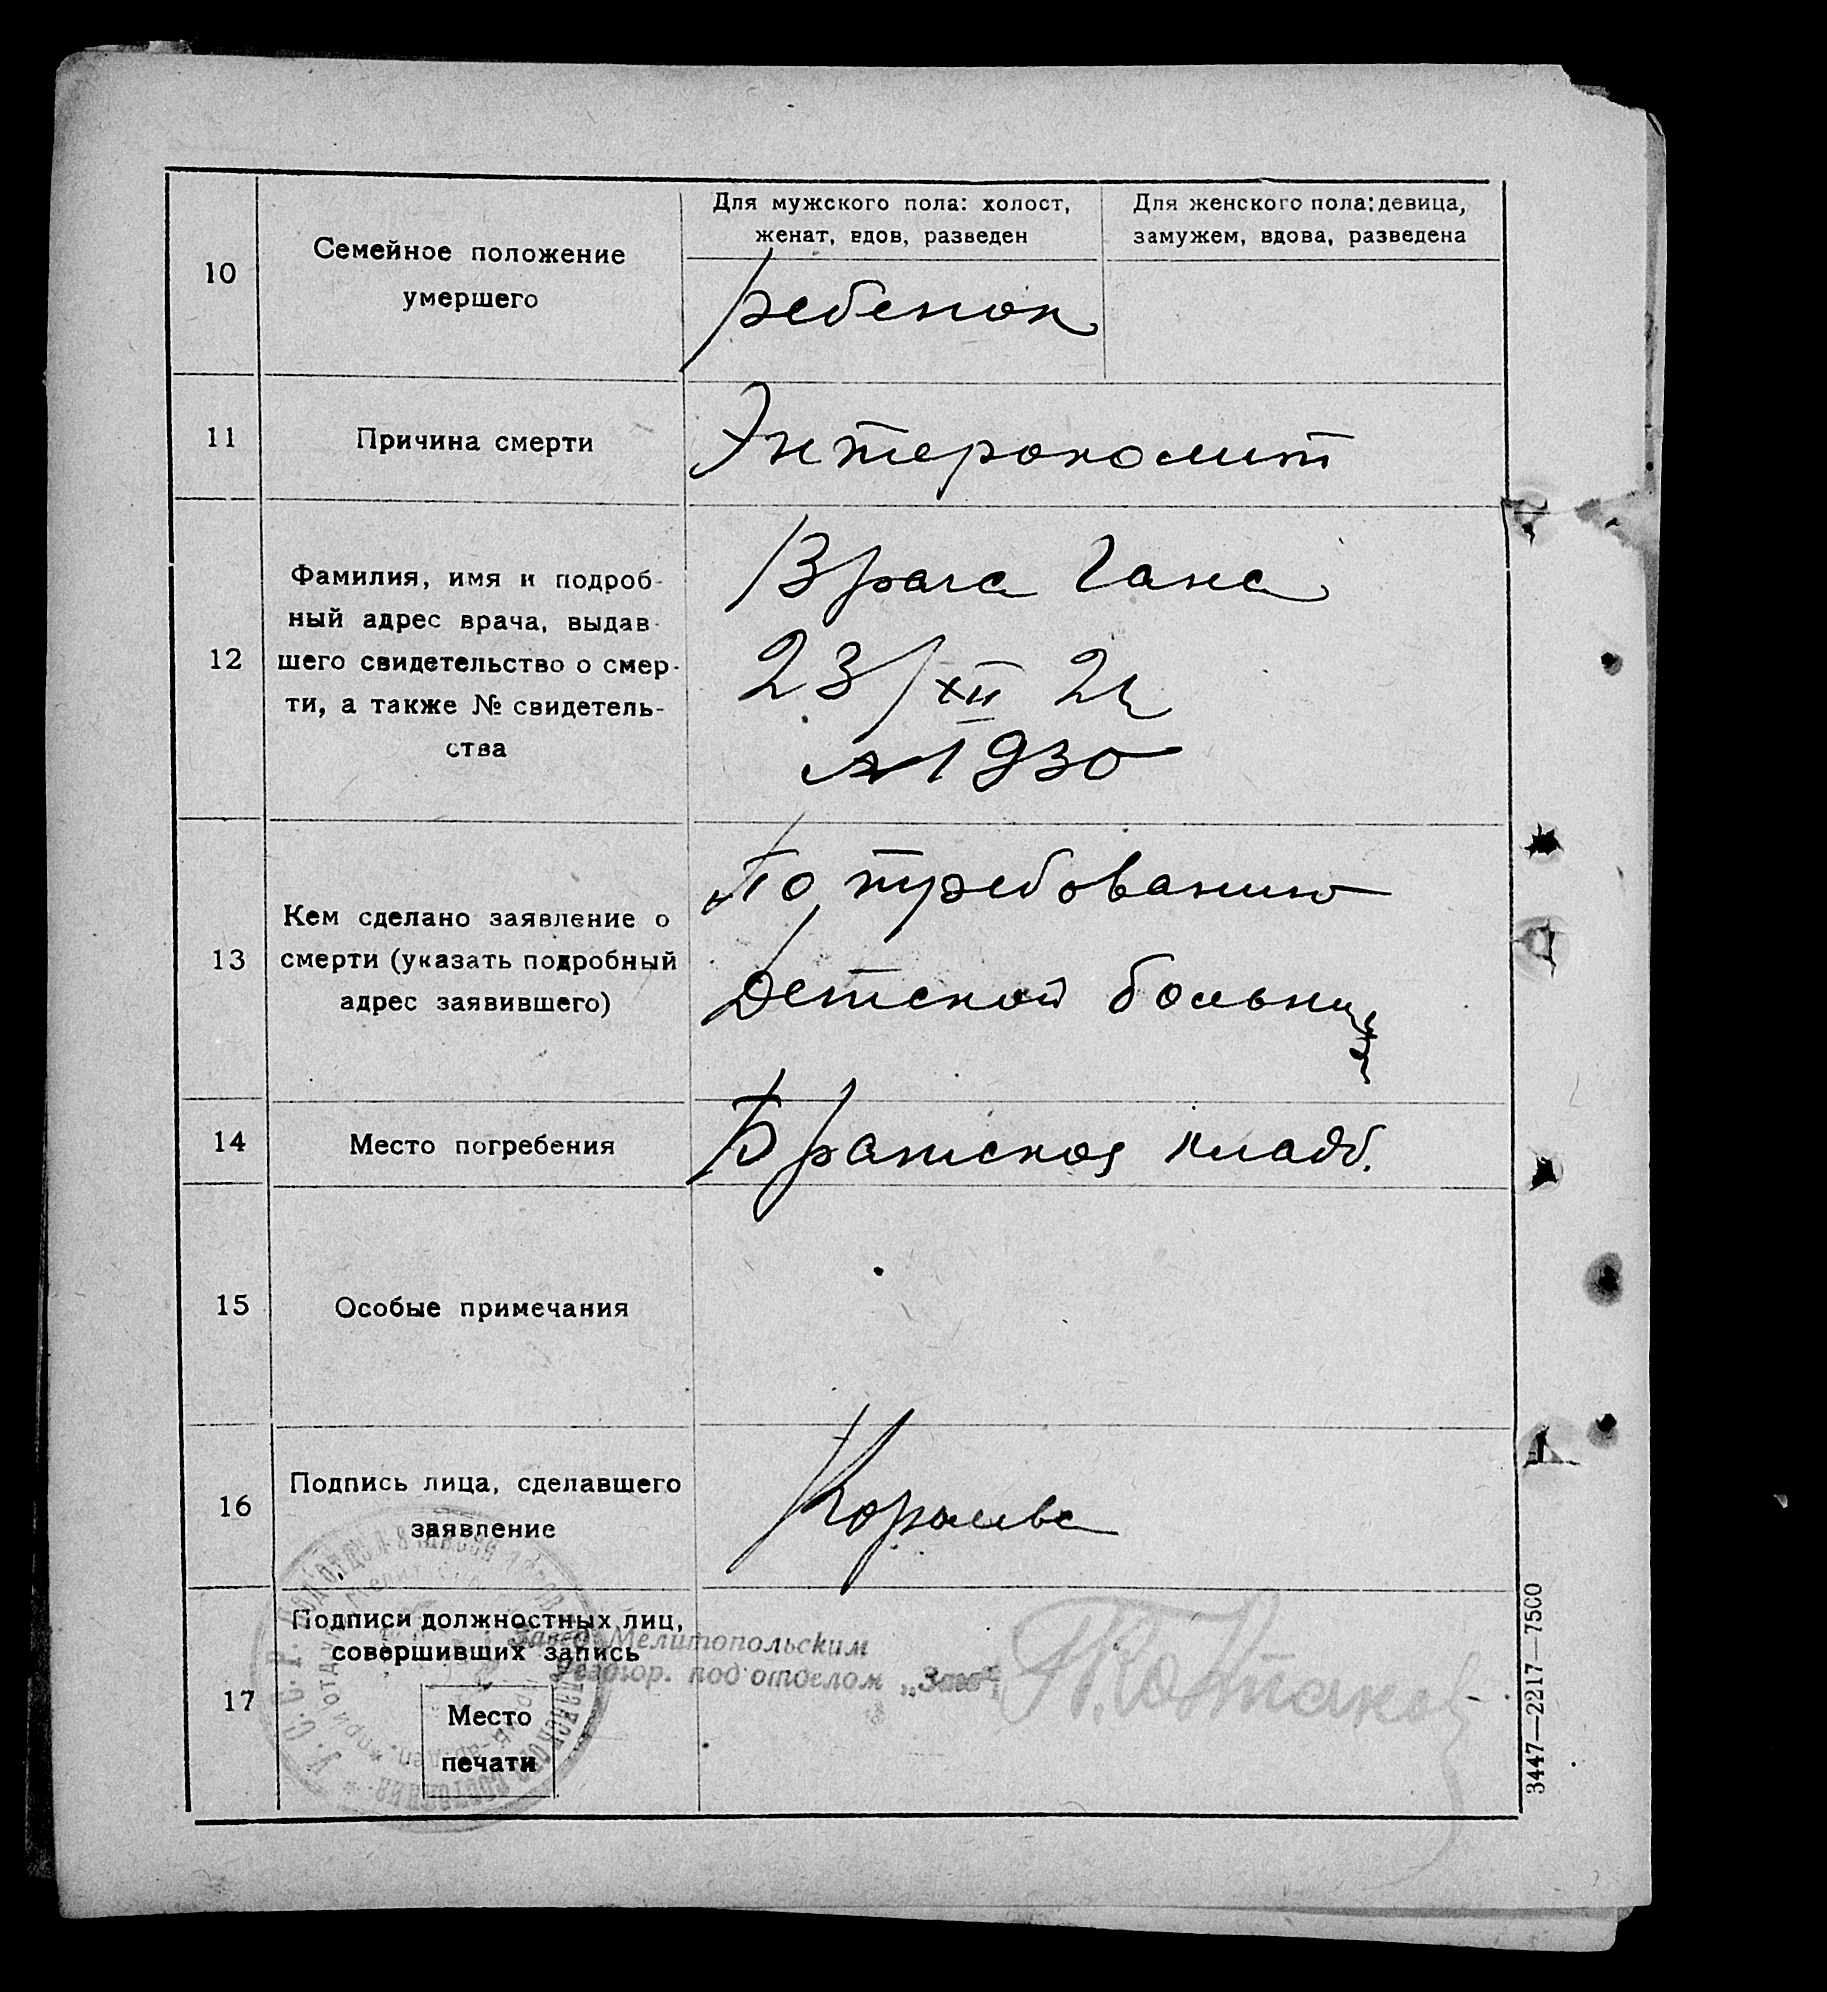 Для мужского пола: холост,
женат, вдов, разведен
Для женского пола: девица,
замужем, вдова, разведена
10
Семейное положение
умершего
ребенок
11
Причина смерти
Энтероколит
12
Фамилия, имя и подроб-
ный адрес врача, выдав-
шего свидетельство о смер-
ти, а также № свидетель-
ства
Врача Гана
23/XII 21
№ 1930
13
Кем сделано заявление о
смерти (указать подробный
адрес заявившего)
По требованию
Детской больницы
14
Место погребения
Братское кладб.
15
Особые примечания
16
Подпись лица, сделавшего
заявление
17
Подписи должностных лиц,
совершивших запись
Завед. Мелитопольским
под'отделом „Загс"
Место
печати
3447—2217—7500